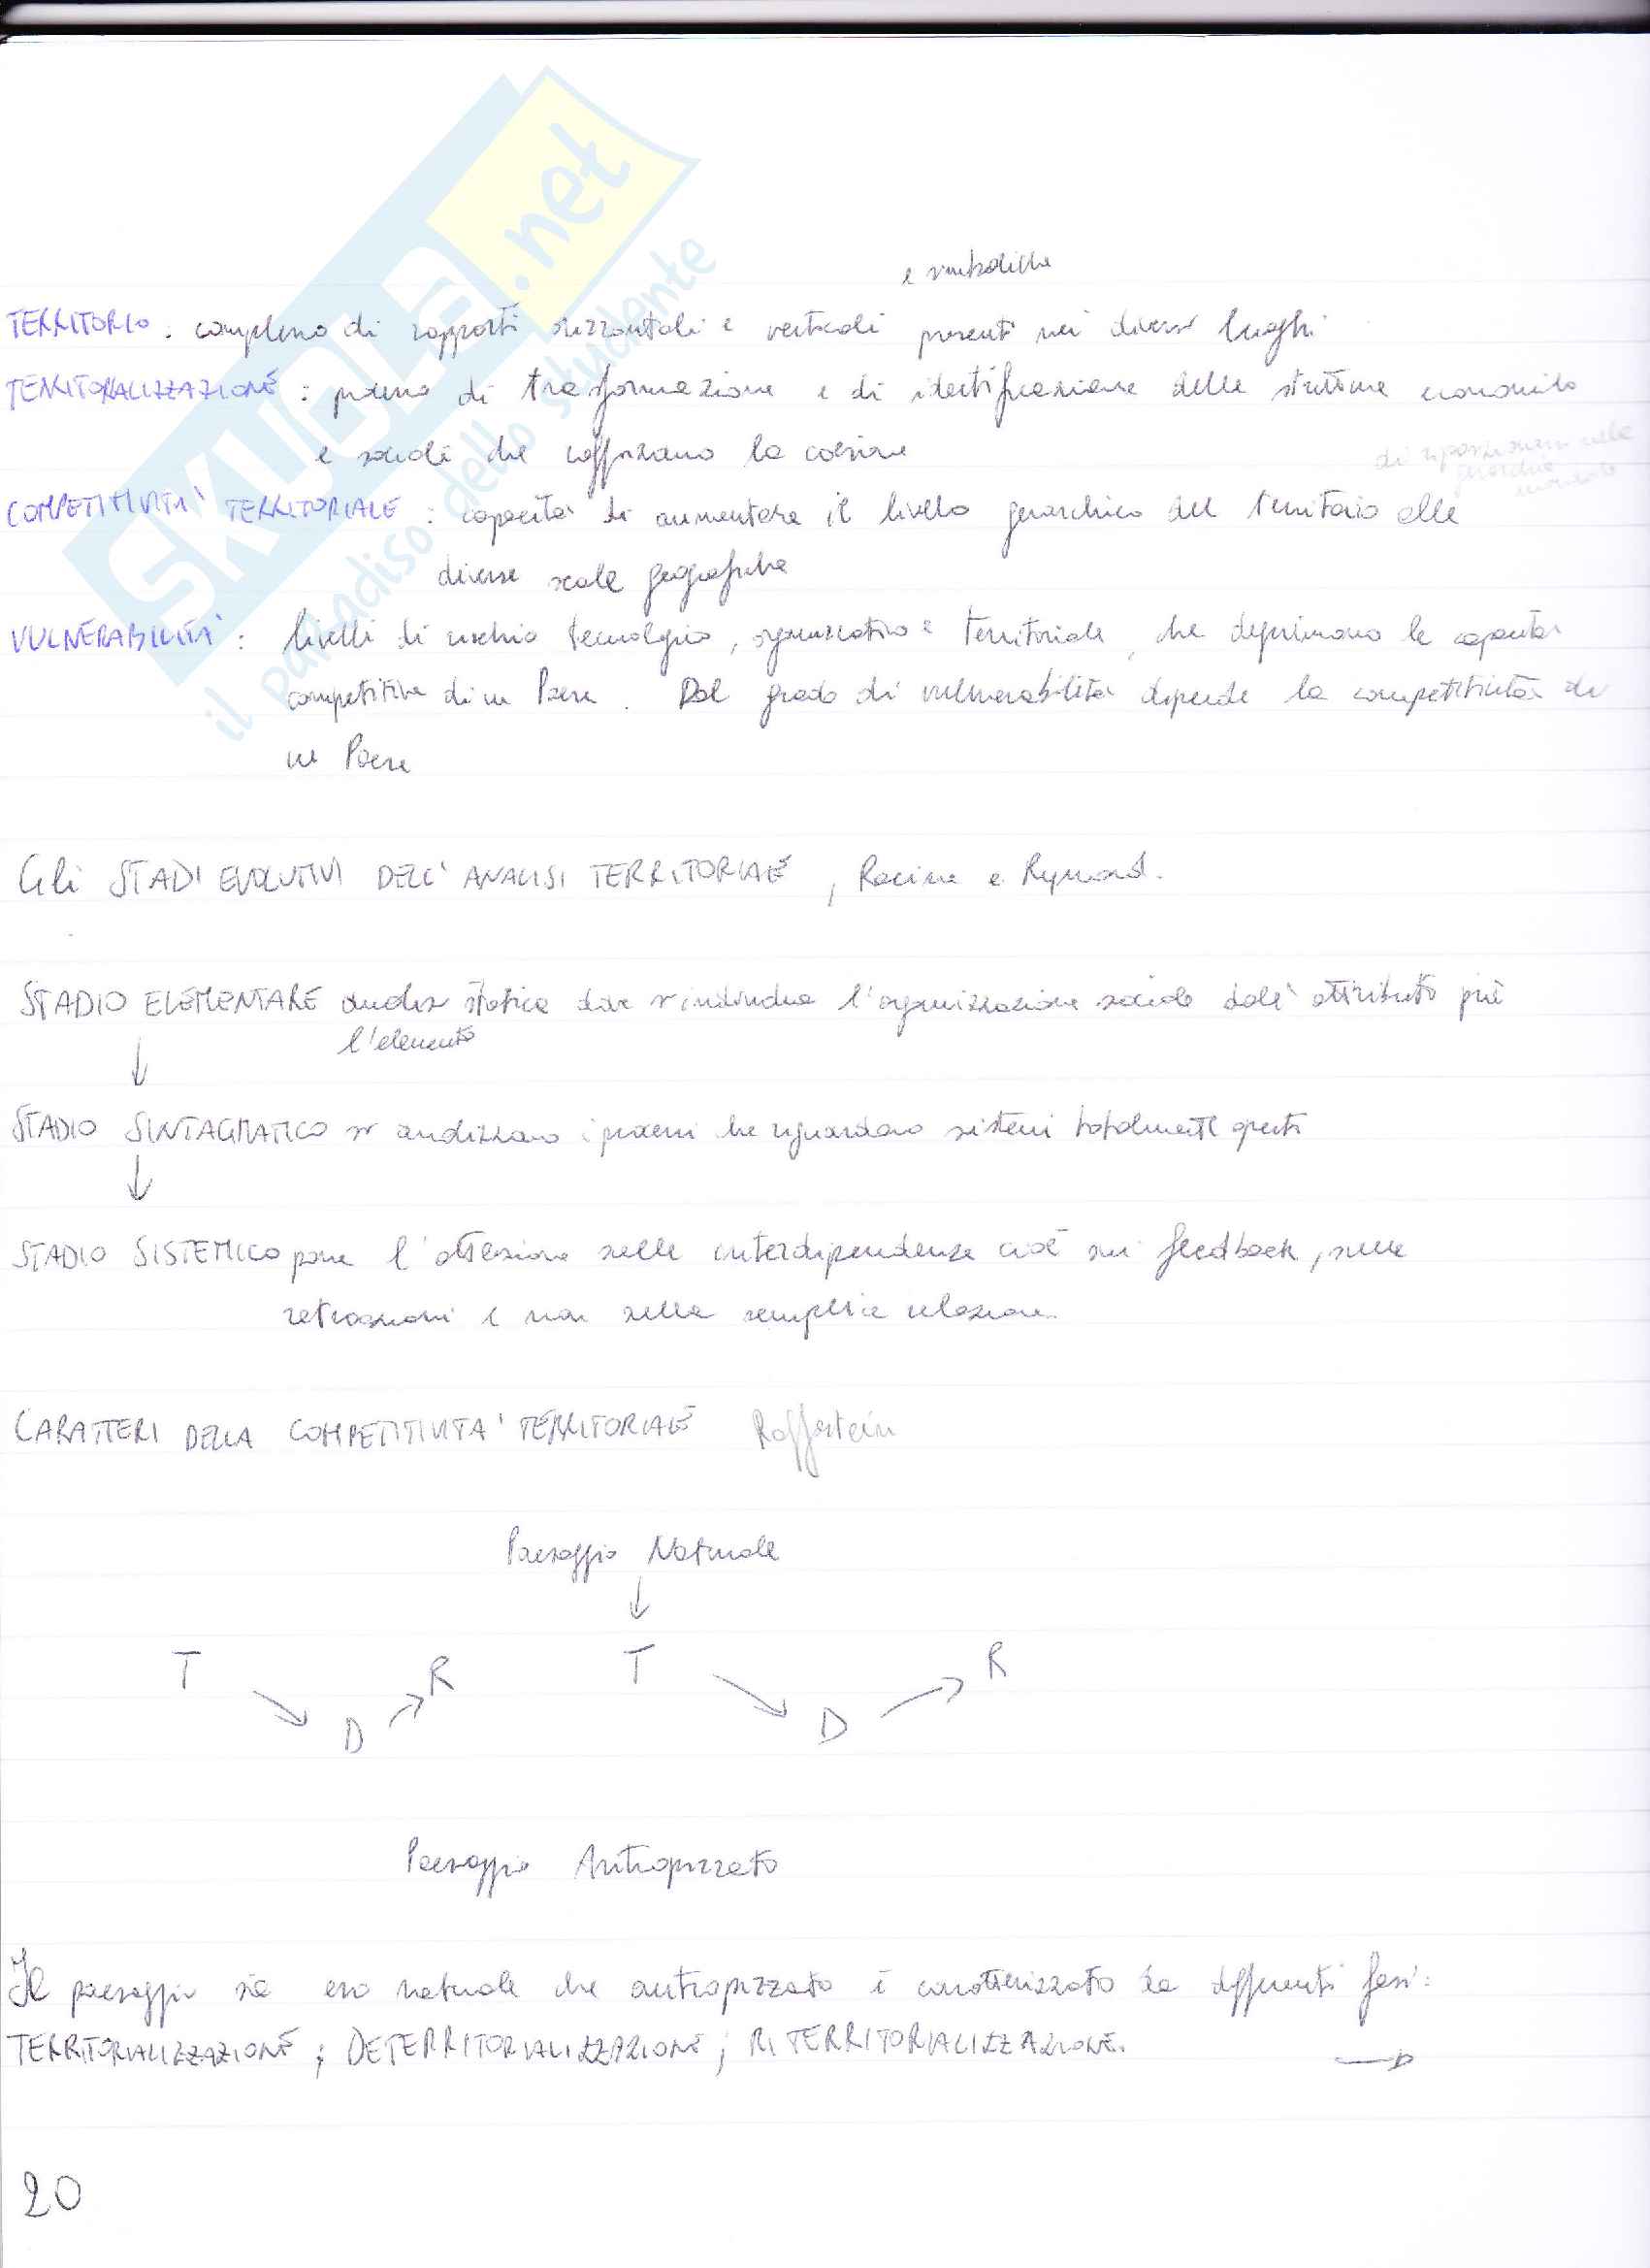 SKUOLA.net
il paradiso dello studente
e simboliche
TERRITORIO: complesso di rapporti orizzontali e verticali presenti nei diversi luoghi
TERRITORIALIZZAZIONE: processo di trasformazione e di identificazione delle strutture economiche
e sociali che rafforzano la coesione
di riposizionarsi nelle
gerarchie
COMPETITIVITA' TERRITORIALE: capacità di aumentare il livello gerarchico del territorio alle
diverse scale geografiche
VULNERABILITA': livelli di rischio tecnologico, organizzativo e territoriale, che deprimono le capacità
competitive di un Paese. Dal grado di vulnerabilità dipende la competitività di
un Paese
Gli STADI EVOLUTIVI DELL'ANALISI TERRITORIALE, Racine e Rymond.
STADIO ELEMENTARE analisi statica dove si individua l'organizzazione sociale dall'attributo più
l'elemento
↓
STADIO SINTAGMATICO si analizzano i processi che riguardano sistemi totalmente aperti
↓
STADIO SISTEMICO pone l'attenzione sulle interdipendenze cioè sui feedback, sulle
retroazioni e non sulla semplice relazione.
CARATTERI DELLA COMPETITIVITA' TERRITORIALE Raffestein
Paesaggio Naturale
↓
T R T R
D D
Paesaggio Antropizzato
Il paesaggio sia esso naturale che antropizzato è caratterizzato da differenti fasi:
TERRITORIALIZZAZIONE; DETERRITORIALIZZAZIONE; RITERRITORIALIZZAZIONE.
20